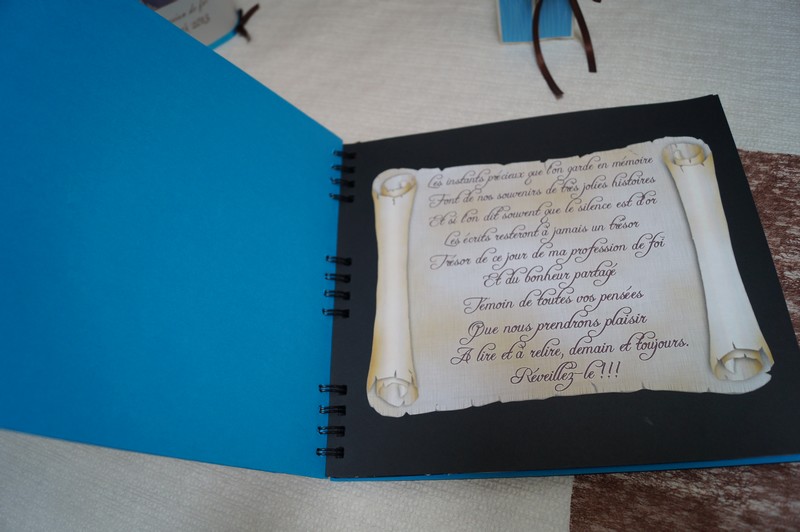 Les instants précieux que l'on garde en mémoire
Font de nos souvenirs de très jolies histoires
Et si l'on dit souvent que le silence est d'or
Les écrits resteront à jamais un trésor
Trésor de ce jour de ma profession de foi
Et du bonheur partagé
Témoin de toutes vos pensées
Que nous prendrons plaisir
A lire et à relire, demain et toujours.
Réveillez-le !!!